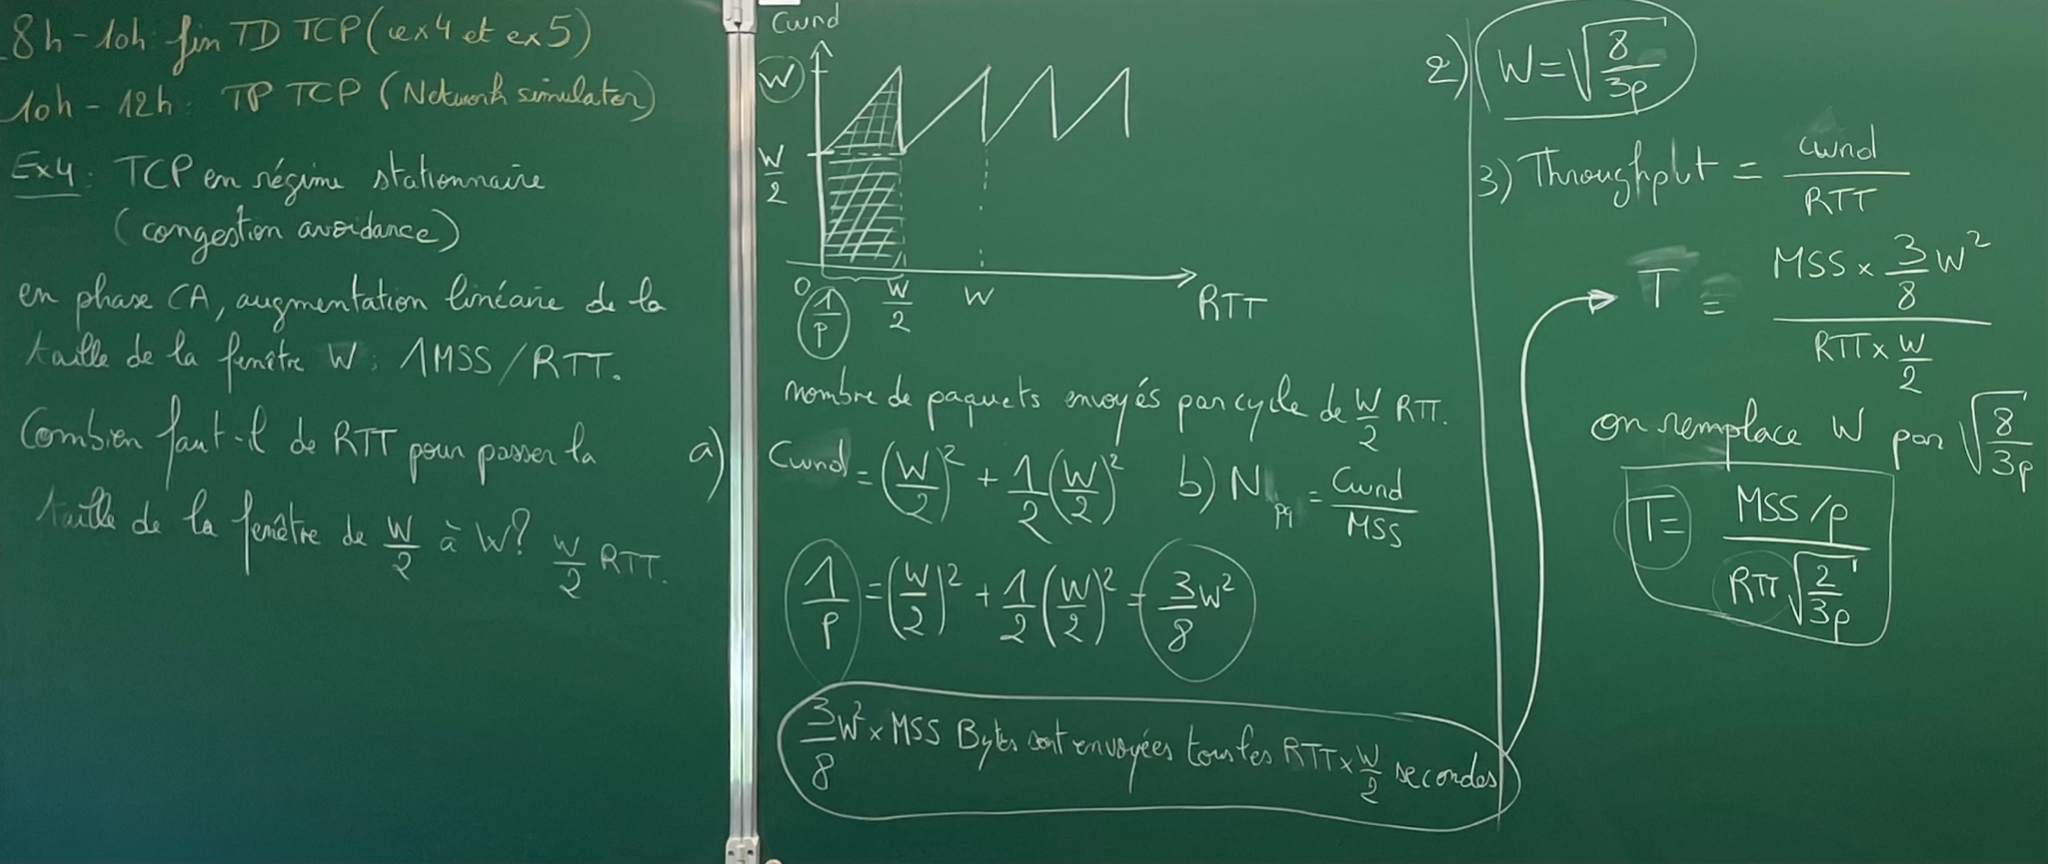 8h-10h: fin TD TCP (ex4 et ex5)
10h - 12h: TP TCP (Network simulator)
Ex4: TCP en régime stationnaire
(congestion avoidance)
en phase CA, augmentation linéaire de la
taille de la fenêtre W: 1MSS/RTT.
Combien faut-il de RTT pour passer la
taille de la fenêtre de W/2 à W? W/2 RTT.
Cwnd
W
W/2
0 1/p W/2 W RTT
nombre de paquets envoyés par cycle de W/2 RTT.
a) Cwnd = (W/2)² + 1/2 (W/2)² b) N pq = Cwnd/MSS
1/p = (W/2)² + 1/2 (W/2)² = 3/8 W²
3/8 W² × MSS Bytes sont envoyées tous les RTT × W/2 secondes
2) W = √(8/3p)
3) Throughput = cwnd/RTT
T = (MSS × 3/8 W²)/(RTT × W/2)
on remplace W par √(8/3p)
T = (MSS/p)/(RTT √(2/3p))